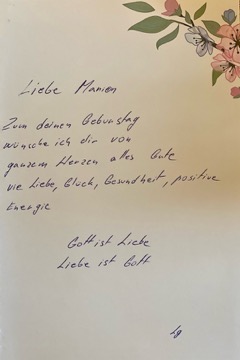 Liebe Manien
Zum deinen Geburstag
wünsche ich dir von
ganzem Herzen alles Gute
vie Liebe, Glück, Gesundheit, positive
Energie
Gott ist Liebe
Liebe ist Gott
Lg